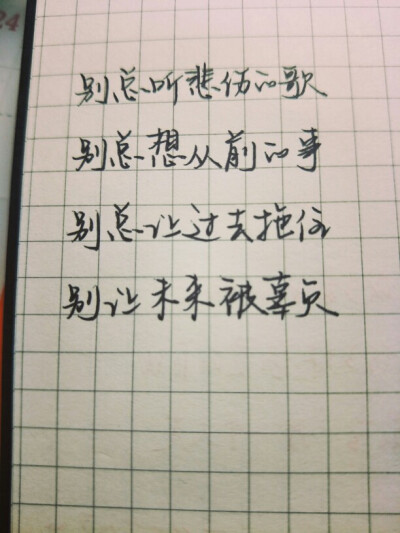 24
别总听悲伤的歌
别总想从前的事
别总让过去拖住
别让未来被辜负